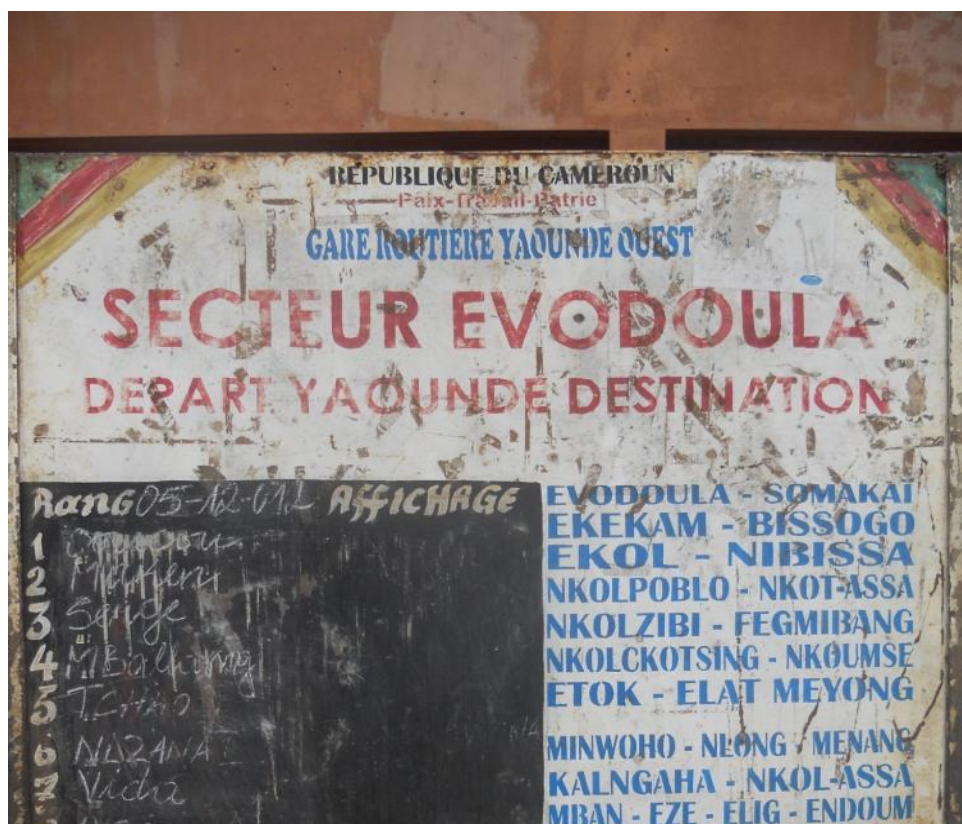 REPUBLIQUE DU CAMEROUN
Paix-Travail-Patrie
GARE ROUTIERE YAOUNDE OUEST
SECTEUR EVODOULA
DEPART YAOUNDE DESTINATION
Rang 05-12-012 AFFICHAGE
1
2 Makeni
3 Serge
4 MBallong
5 TCHAO
6 NDZANA I
7 Vida
EVODOULA - SOMAKAI
EKEKAM - BISSOGO
EKOL - NIBISSA
NKOLPOBLO - NKOT-ASSA
NKOLZIBI - FEGMIBANG
NKOLCKOTSING - NKOUMSE
ETOK - ELAT MEYONG
MINWOHO - NLONG - MENANG
KALNGAHA - NKOL-ASSA
MBAN - EZE - ELIG - ENDOUM